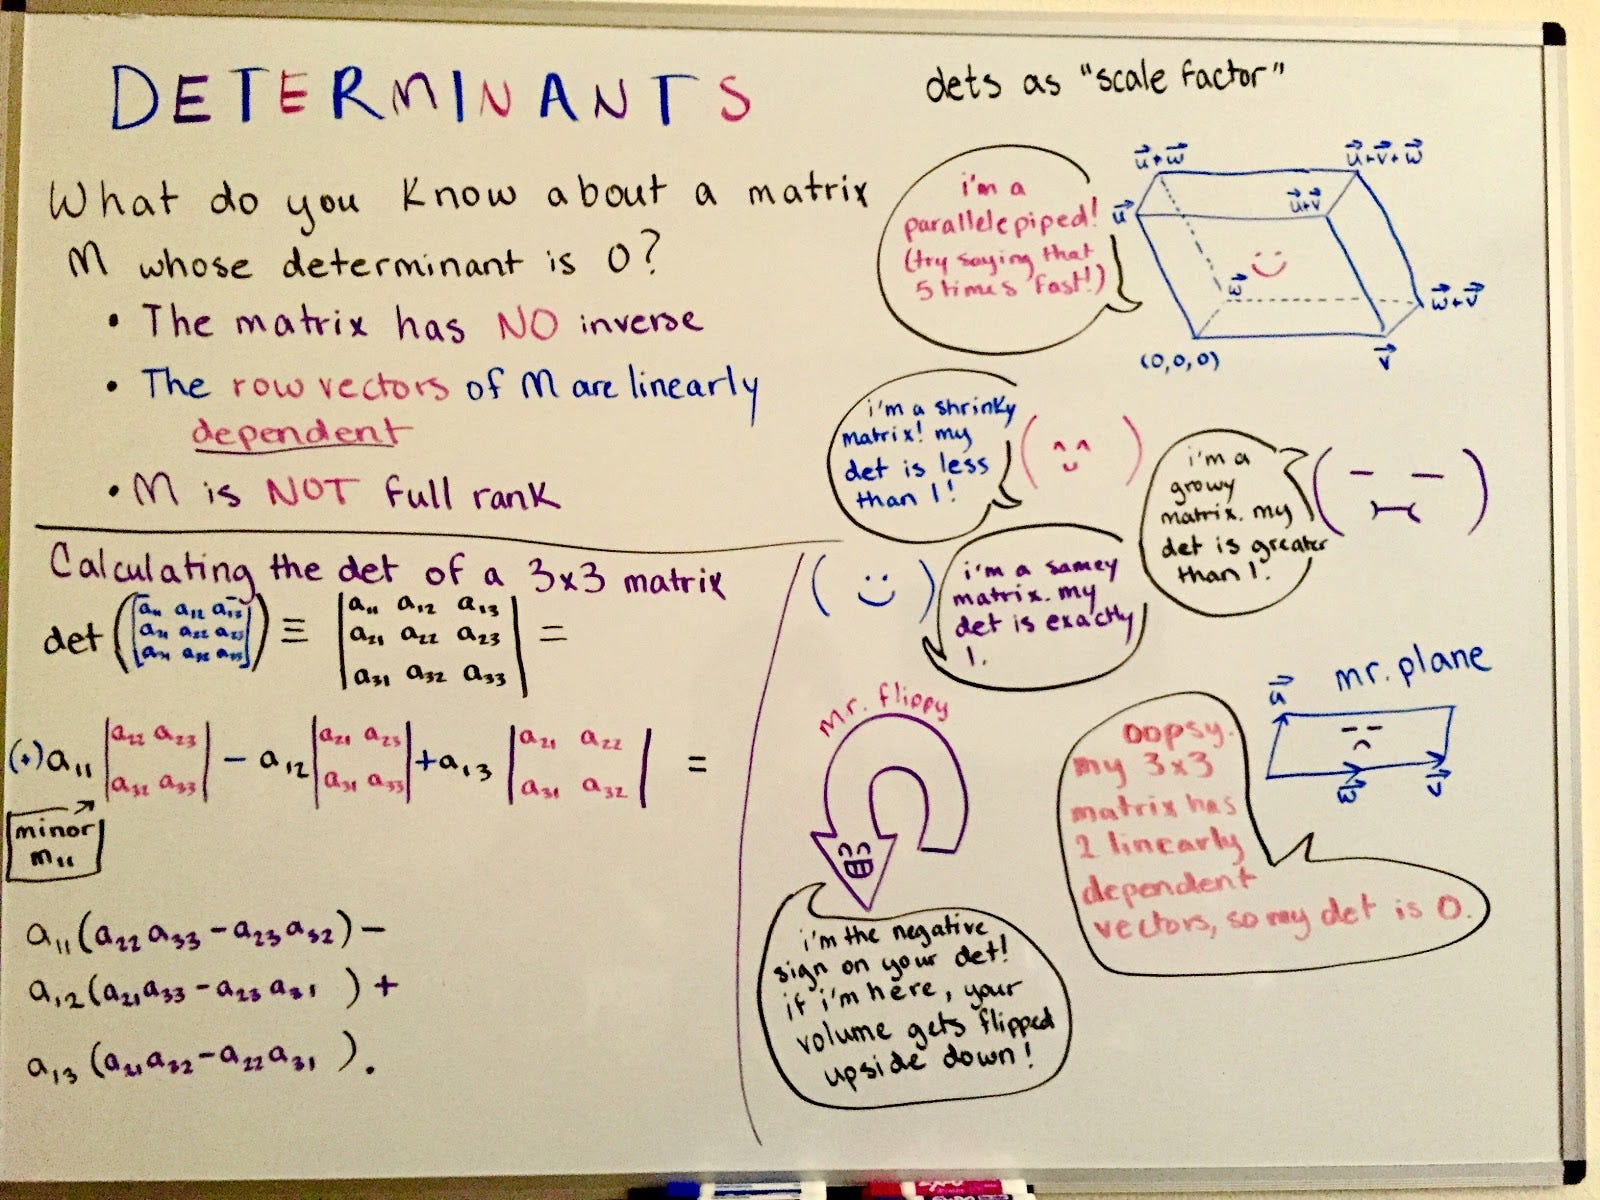 DETERMINANTS
What do you know about a matrix
M whose determinant is 0?
• The matrix has NO inverse
• The row vectors of M are linearly
dependent
• M is NOT full rank
Calculating the det of a 3x3 matrix
det ([a₁₁ a₁₂ a₁₃ ≡ |a₁₁ a₁₂ a₁₃ =
a₂₁ a₂₂ a₂₃ a₂₁ a₂₂ a₂₃
a₃₁ a₃₂ a₃₃]) a₃₁ a₃₂ a₃₃|
(+) a₁₁ |a₂₂ a₂₃ - a₁₂ |a₂₁ a₂₃ + a₁₃ |a₂₁ a₂₂ =
a₃₂ a₃₃| a₃₁ a₃₃| a₃₁ a₃₂|
minor
m₁₁
a₁₁(a₂₂a₃₃ - a₂₃a₃₂) -
a₁₂(a₂₁a₃₃ - a₂₃a₃₁ ) +
a₁₃(a₂₁a₃₂ - a₂₂a₃₁ ).
dets as "scale factor"
i'm a
parallelepiped!
(try saying that
5 times fast!)
u⃗+w⃗
u⃗+v⃗+w⃗
u⃗
u⃗+v⃗
w⃗
w⃗+v⃗
(0,0,0)
v⃗
i'm a shrinky
matrix! my
det is less
than 1!
i'm a
growy
matrix. my
det is greater
than 1.
i'm a samey
matrix. my
det is exactly
1.
mr. flippy
i'm the negative
sign on your det!
if i'm here, your
volume gets flipped
upside down!
mr. plane
u⃗
w⃗
v⃗
oopsy.
my 3x3
matrix has
2 linearly
dependent
vectors, so my det is 0.
EXPO